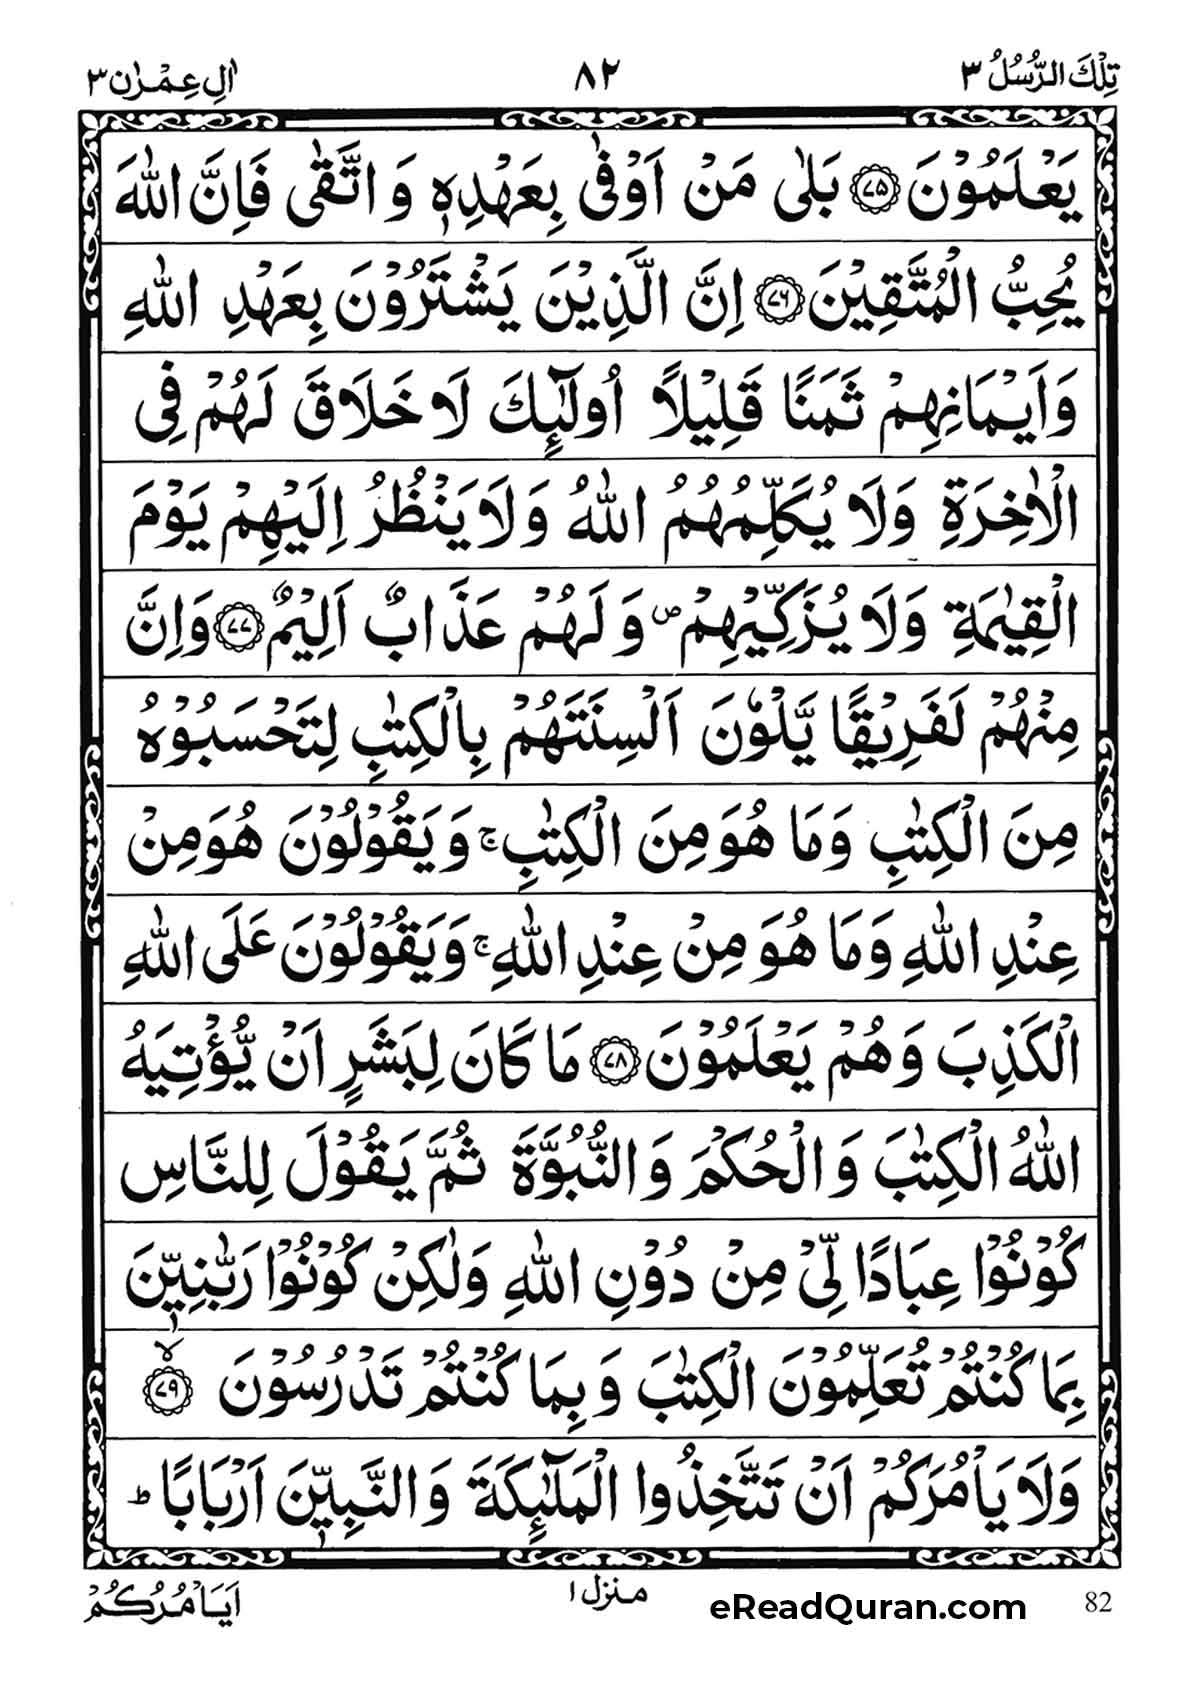 تِلْكَ الرُّسُلُ ٣
٨٢
اٰلِ عِمْرٰن ٣
يَعْلَمُوْنَ ﴿٧٥﴾ بَلٰى مَنْ اَوْفٰى بِعَهْدِهٖ وَ اتَّقٰى فَاِنَّ اللّٰهَ
يُحِبُّ الْمُتَّقِيْنَ ﴿٧٦﴾ اِنَّ الَّذِيْنَ يَشْتَرُوْنَ بِعَهْدِ اللّٰهِ
وَاَيْمَانِهِمْ ثَمَنًا قَلِيْلًا اُولٰٓئِكَ لَا خَلَاقَ لَهُمْ فِى
الْاٰخِرَةِ وَلَا يُكَلِّمُهُمُ اللّٰهُ وَلَا يَنْظُرُ اِلَيْهِمْ يَوْمَ
الْقِيٰمَةِ وَلَا يُزَكِّيْهِمْ ۖ وَلَهُمْ عَذَابٌ اَلِيْمٌ ﴿٧٧﴾ وَاِنَّ
مِنْهُمْ لَفَرِيْقًا يَّلْوٗنَ اَلْسِنَتَهُمْ بِالْكِتٰبِ لِتَحْسَبُوْهُ
مِنَ الْكِتٰبِ وَمَا هُوَ مِنَ الْكِتٰبِ ۚ وَيَقُوْلُوْنَ هُوَ مِنْ
عِنْدِ اللّٰهِ وَمَا هُوَ مِنْ عِنْدِ اللّٰهِ ۚ وَيَقُوْلُوْنَ عَلَى اللّٰهِ
الْكَذِبَ وَهُمْ يَعْلَمُوْنَ ﴿٧٨﴾ مَا كَانَ لِبَشَرٍ اَنْ يُّؤْتِيَهُ
اللّٰهُ الْكِتٰبَ وَالْحُكْمَ وَالنُّبُوَّةَ ثُمَّ يَقُوْلَ لِلنَّاسِ
كُوْنُوْا عِبَادًا لِّىْ مِنْ دُوْنِ اللّٰهِ وَلٰكِنْ كُوْنُوْا رَبّٰنِيّٖنَ
بِمَا كُنْتُمْ تُعَلِّمُوْنَ الْكِتٰبَ وَبِمَا كُنْتُمْ تَدْرُسُوْنَ ۙ﴿٧٩﴾
وَلَا يَاْمُرَكُمْ اَنْ تَتَّخِذُوا الْمَلٰٓئِكَةَ وَالنَّبِيّٖنَ اَرْبَابًا ؕ
اَيَاْمُرُكُمْ
منزل ١
eReadQuran.com
82